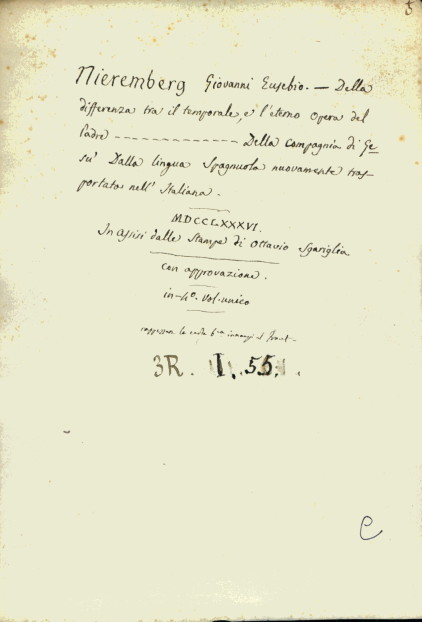 5
Nieremberg Giovanni Eusebio. — Della
differenza tra il temporale, e l'eterno opera del
Padre ————————— Della compagnia di Ge=
su' Dalla lingua Spagnuola nuovamente tras-
portata nell' Italiana.
MDCCLXXXVI.
In Assisi dalle Stampe di Ottavio Sgariglia
con approvazione.
in-4°. vol. unico
la carta innanzi il front.
3R. I. 55.
e